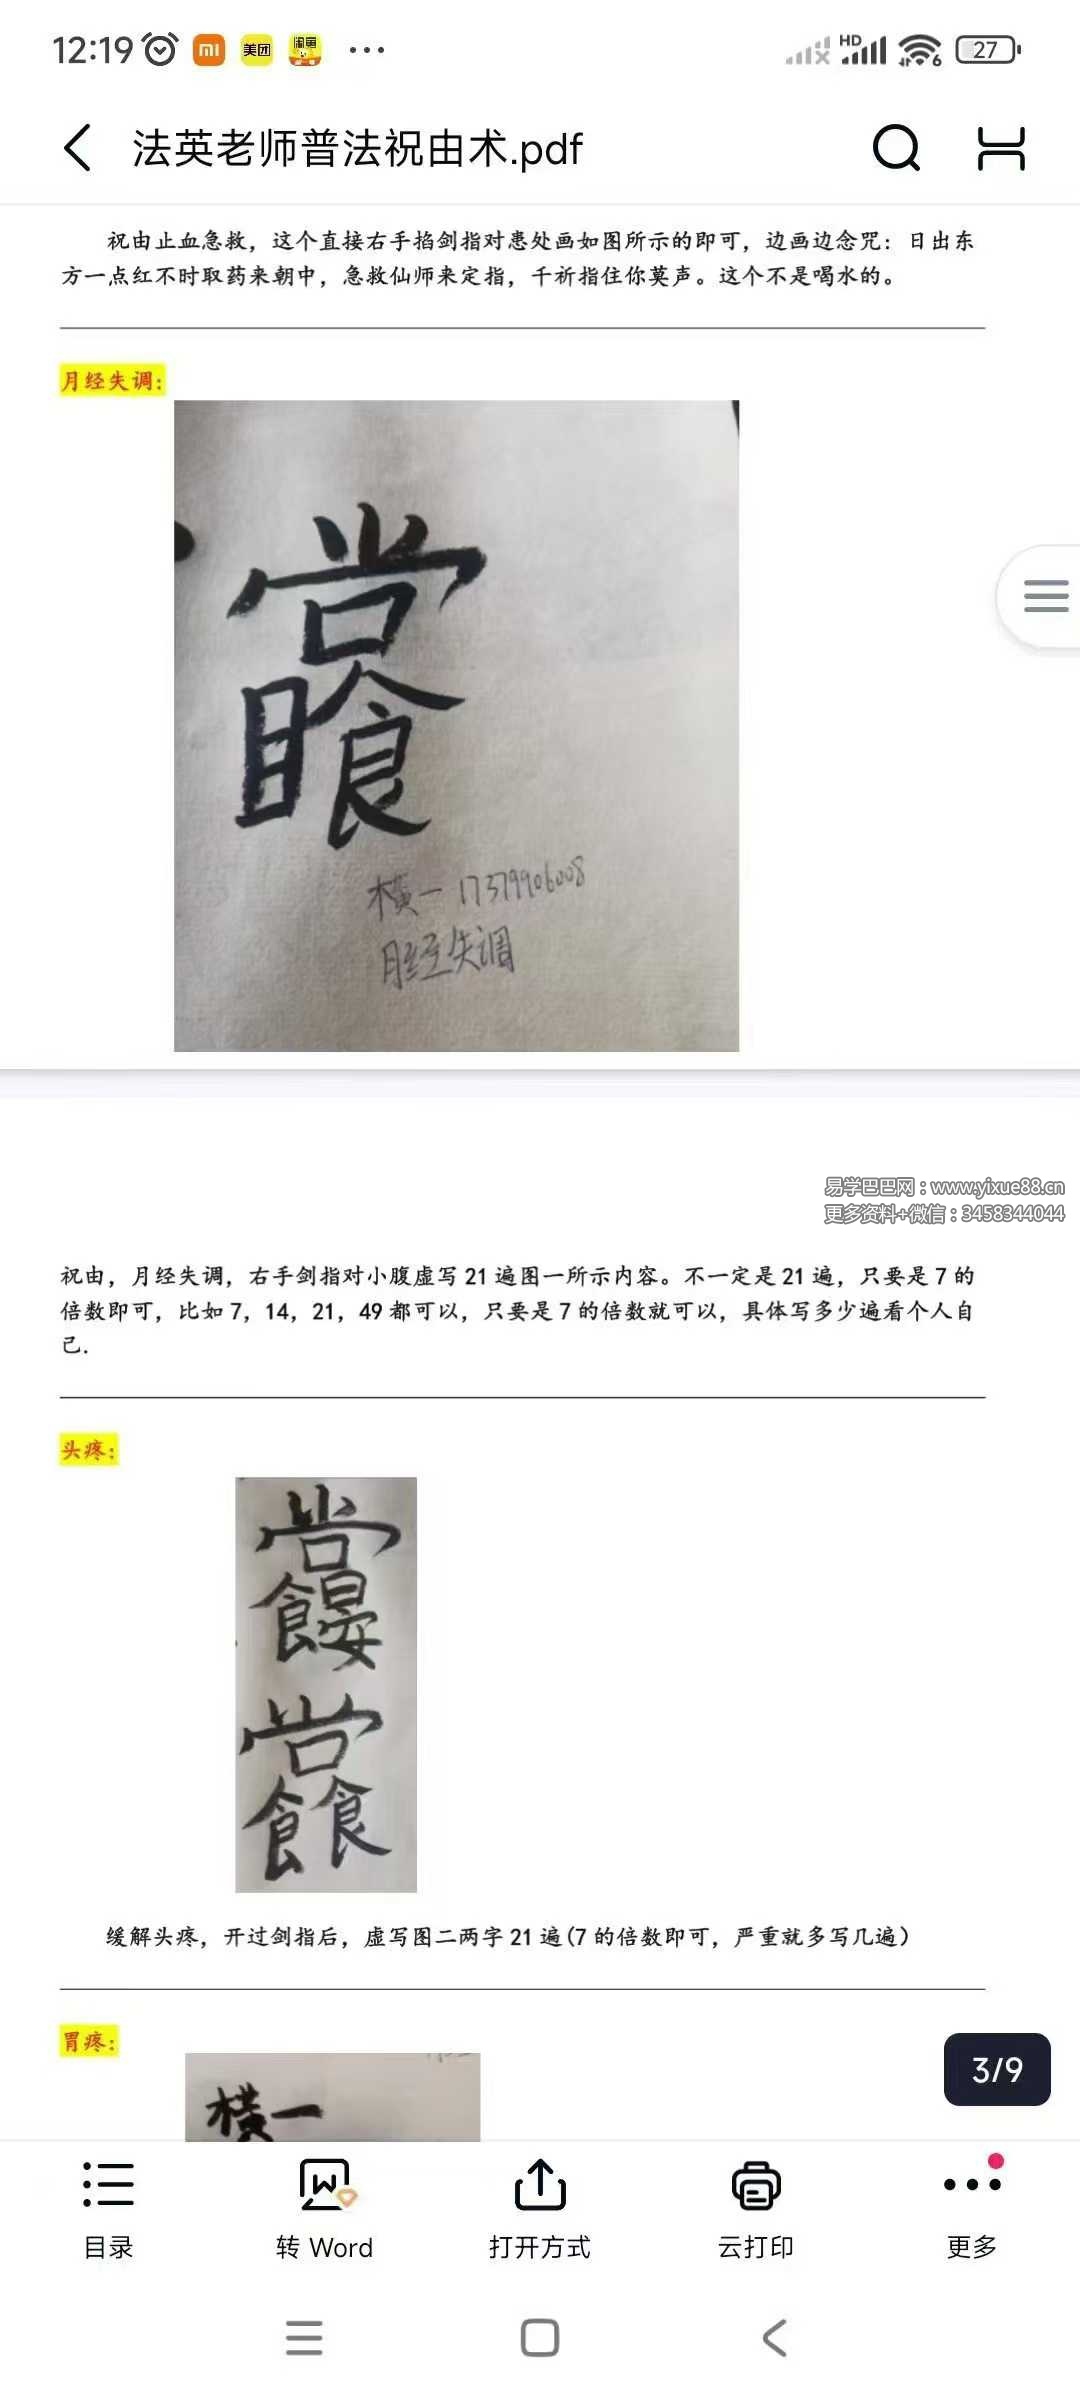 12:19 mi 美团 闲鱼 HD 6 27
法英老师普法祝由术.pdf
祝由止血急救，这个直接右手掐剑指对患处画如图所示的即可，边画边念咒：日出东
方一点红不时取药来朝中，急救仙师来定指，千祈指住你莫声。这个不是喝水的。
月经失调：
横一 17379906008
月经失调
易学巴巴网：www.yixue88.cn
更多资料+微信：3458344044
祝由，月经失调，右手剑指对小腹虚写 21 遍图一所示内容。不一定是 21 遍，只要是 7 的
倍数即可，比如 7，14，21，49 都可以，只要是 7 的倍数就可以，具体写多少遍看个人自
己.
头疼：
缓解头疼，开过剑指后，虚写图二两字 21 遍(7 的倍数即可，严重就多写几遍）
胃疼：
横一
3/9
目录 转 Word 打开方式 云打印 更多